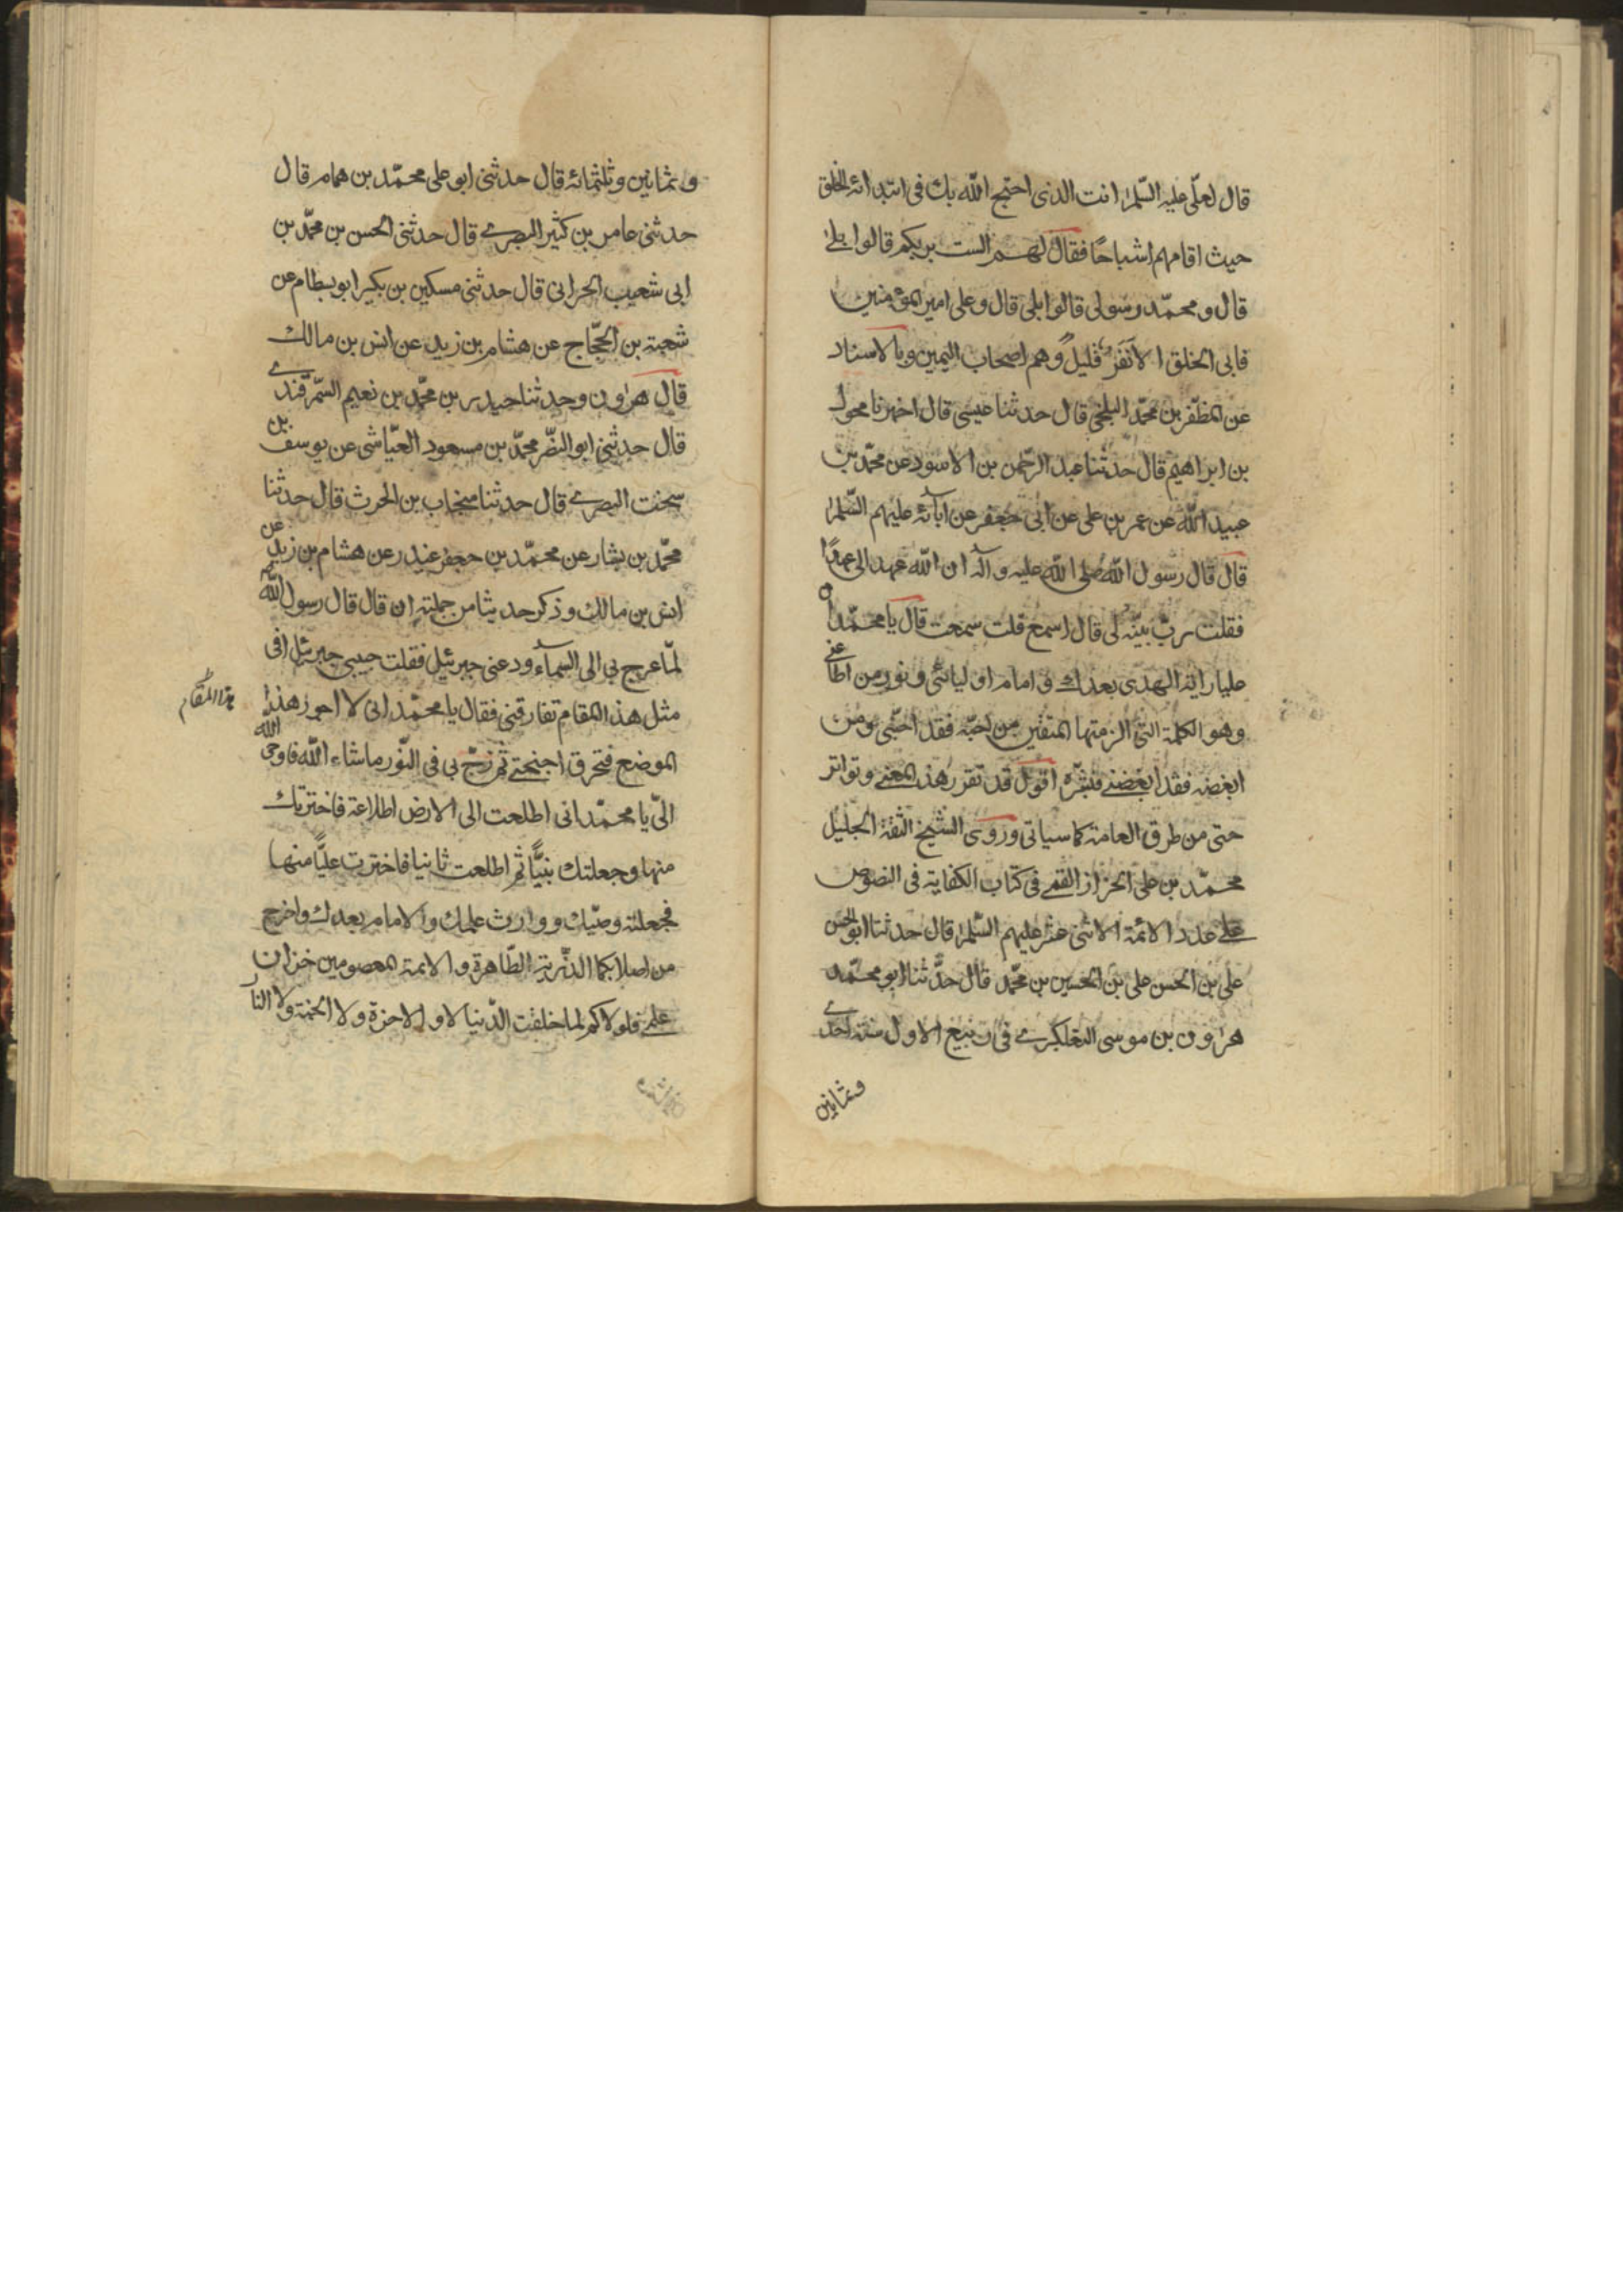 قال لعلّی علیه السّلم انت الذی احتج اللّه بك فی ابتدائه الخلق
حیث اقامهم اشباحًا فقال لهم الست بربكم قالوا بلی
قال و محمّد رسولی قالوا بلی قال و علی امیر المؤمنین
فابی الخلق الا نفر قلیل وهم اصحاب الیمین وبالاسناد
عن المظفّر بن محمّد البلخی قال حدثنا عیسی قال اخبرنا محول
بن ابراهیم قال حدثنا عبد الرّحمن بن الاسود عن محمّد بن
عبید اللّه عن عمر بن علی عن ابی جعفر عن آبائه علیهم السّلم
قال قال رسول اللّه صلی اللّه علیه و آله ان اللّه عهد الی عهدًا
فقلت ربّ بیّنه لی قال اسمع قلت سمعت قال یا محمّد ان
علیا رایة الهدی بعدك و امام اولیائی و نور من اطاعنی
وهو الكلمة التی الزمتها المتقین من احبّه فقد احبّنی و من
ابغضه فقد ابغضنی فبشّره اقول قد تقرر هذ المعنی و تواتر
حتی من طرق العامة كما سیاتی و روی الشیخ الثقة الجلیل
محمّد بن علی الخزاز القمی فی كتاب الكفایة فی النصوص
علی عدد الائمة الاثنی عشر علیهم السّلم قال حدثنا ابو الحسن
علی بن الحسن علی بن الحسین بن محمّد قال حدّثنا ابو محمّد
هرون بن موسی التلعكبری فی ربیع الاول سنة احدی
وثمانین
و ثمانین و ثلثمائه قال حدثنی ابو علی محمّد بن همام قال
حدثنی عامر بن كثیر البصری قال حدثنی الحسن بن محمّد بن
ابی شعیب الحرانی قال حدثنی مسكین بن بكیر ابو بسطام عن
شعبة بن الحجّاج عن هشام بن زید عن انس بن مالك
قال هرون و حدثنا حیدر بن محمّد بن نعیم السّمرقندی
قال حدثنی ابو النضّر محمّد بن مسعود العیّاشی عن یوسف بن
سخت البصری قال حدثنا منجاب بن الحرث قال حدثنا
محمّد بن بشار عن محمّد بن جعفر غندر عن هشام بن زید عن
انس بن مالك و ذكر حدیثا من جملته ان قال قال رسول اللّه
لمّا عرج بی الی السمآء ودعنی جبرئیل فقلت حبیبی جبرئیل افی
مثل هذ المقام تفارقنی فقال یا محمّد انی لا اجوز هذا
هذا المقام
الموضع فتحرق اجنحتی ثم زجّ بی فی النّور ماشاء اللّه فاوحی اللّه
الیّ یا محمّد انی اطلعت الی الارض اطلاعة فاخترتك
منها وجعلتك نبیًّا ثم اطلعت ثانیا فاخترت علیًّا منها
فجعلته وصیّك و وارث علمك و الامام بعدك و اخرج
من اصلابكما الذّریة الطّاهرة و الائمة المعصومین خزان
علمی فلولاكم لما خلقت الدّنیا لا و الاخرة ولا الجنة ولا النار